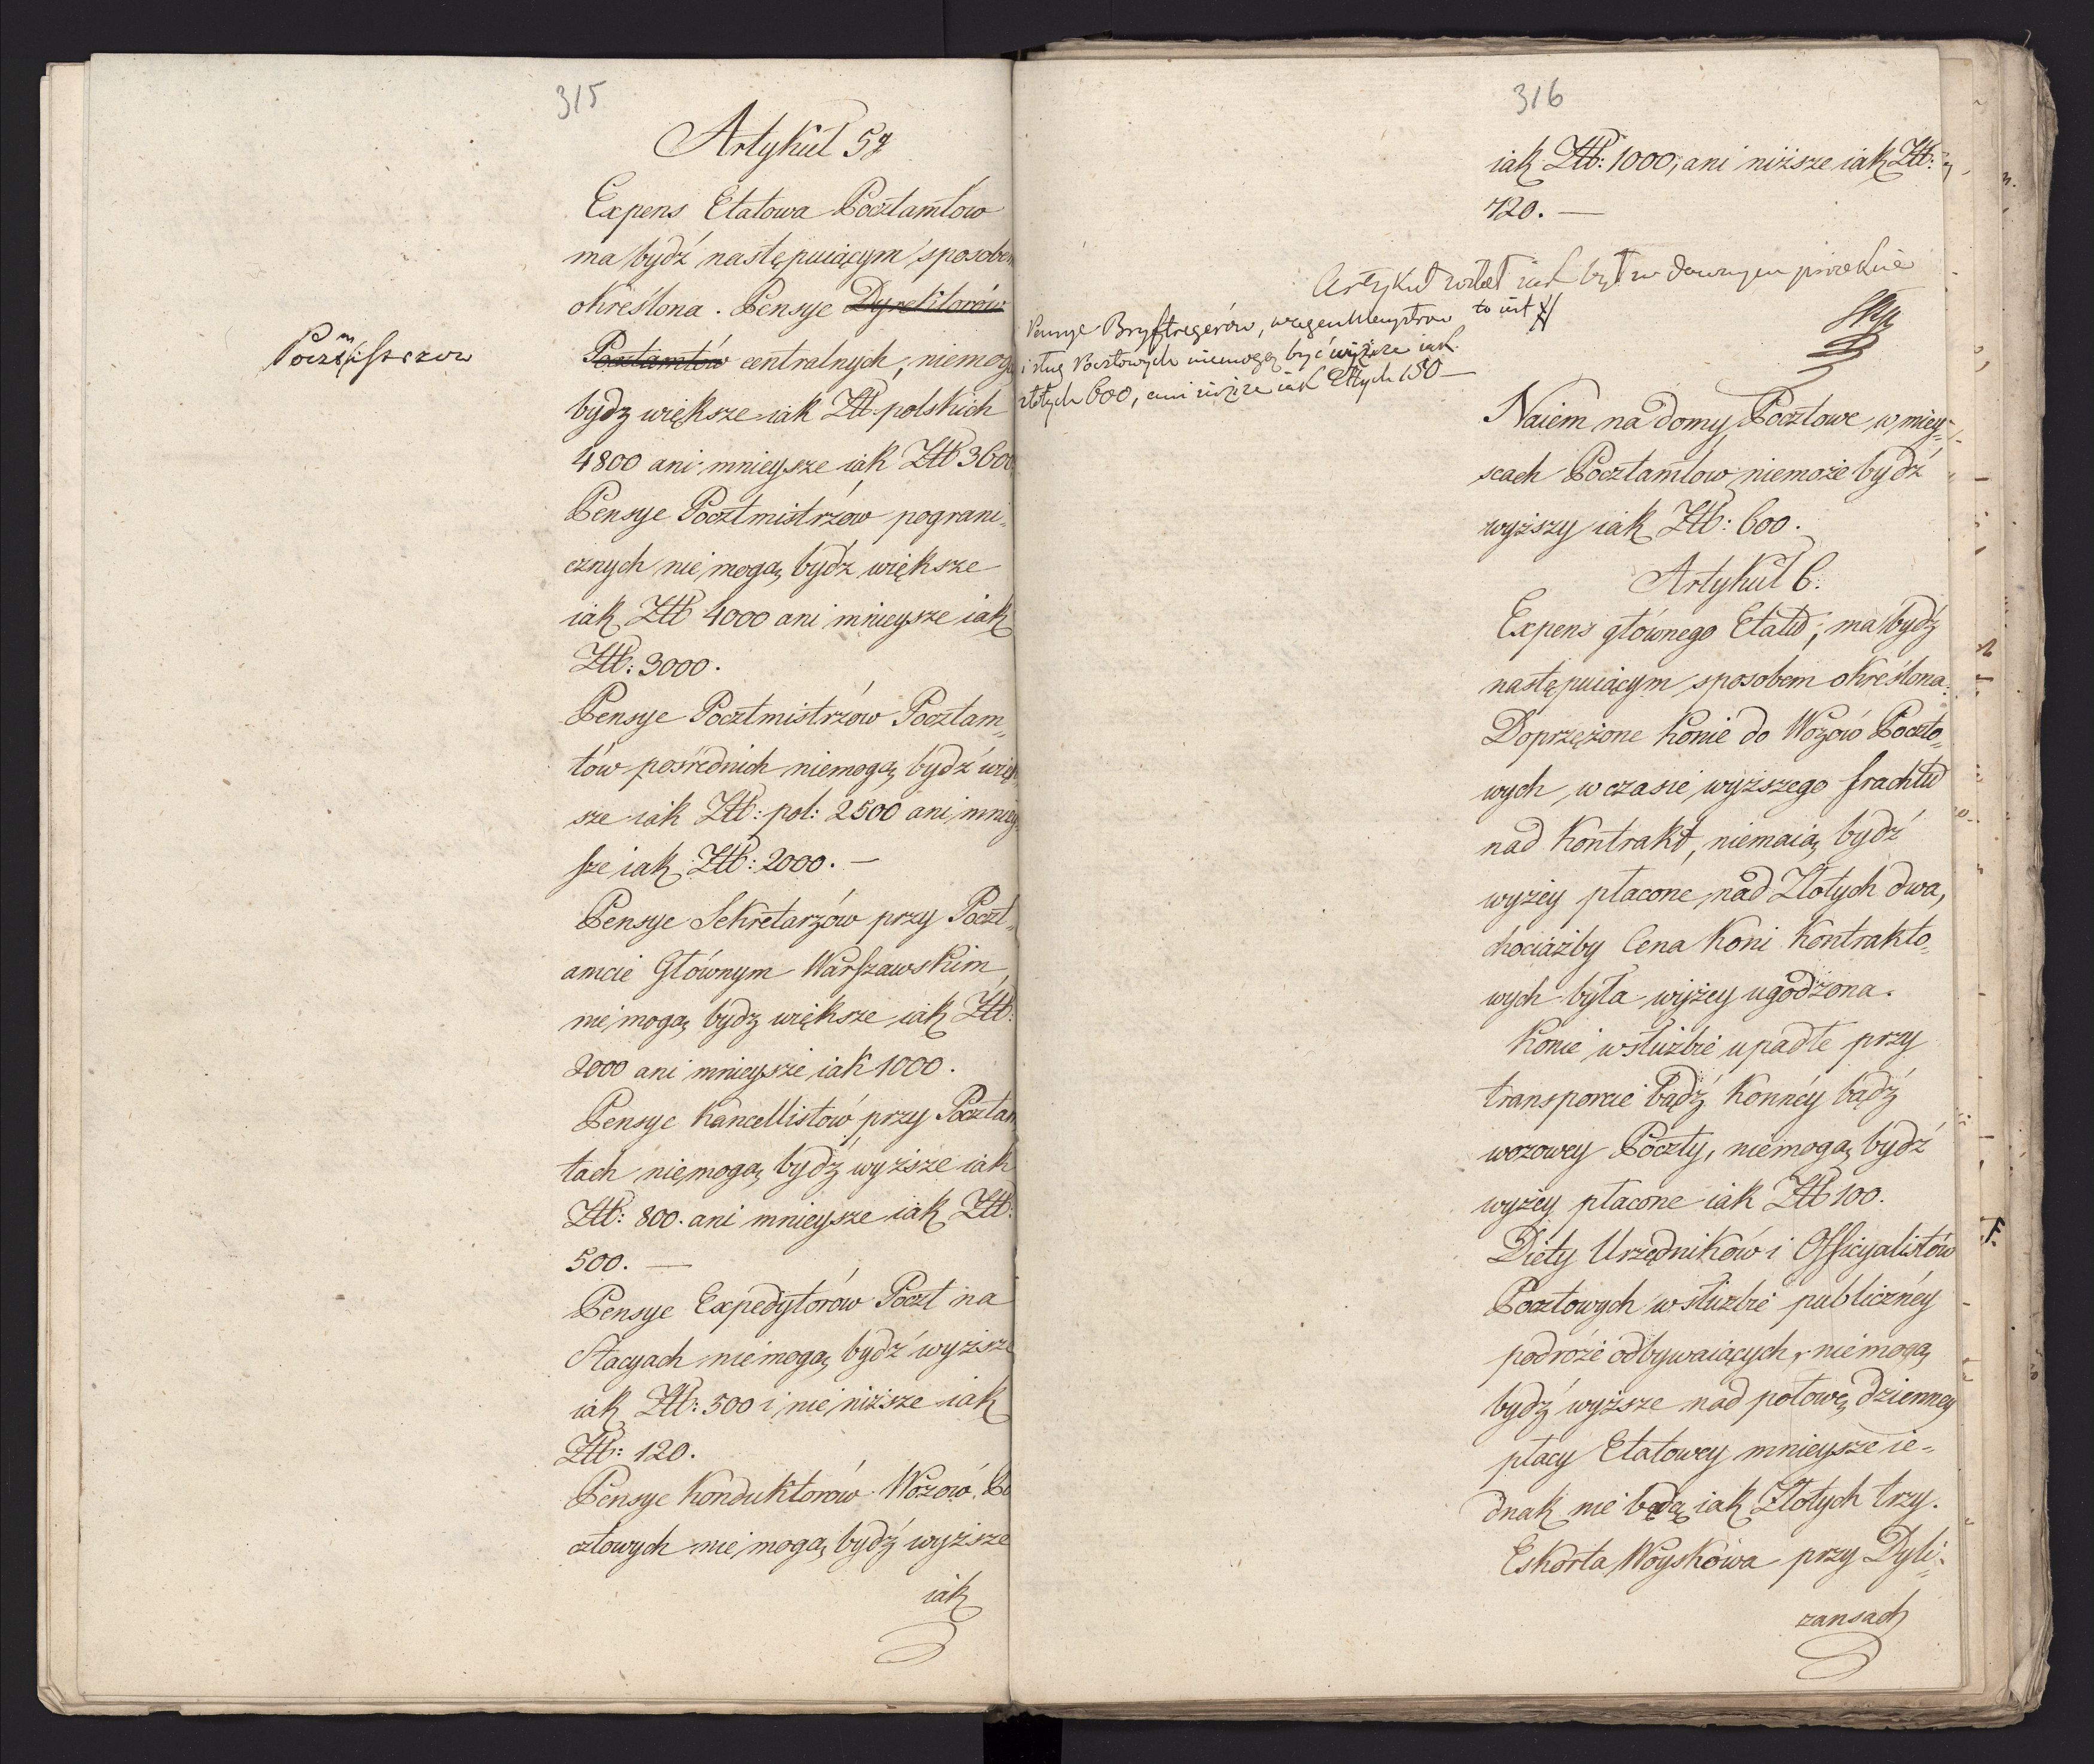 315
Artykuł 5ty
Expens Etatowa Pocztamtow
ma bydź następuiącym sposobem
określona. Pensye Dyrektorów
Pocztmistrzow
Pocztamtów centralnych, niemogą
bydz większe iak Złł polskich
4800 ani mnieysze iak Złł 3600
Pensye Pocztmistrzow pograni„
cznych nie mogą bydź większe
iak Złł 4000 ani mnieysze iak
Złł: 3000.
Pensye Pocztmistrzów Pocztam„
tów pośrednich niemogą bydź więk
sze iak Złł: pol: 2500 ani mniey„
sze iak Złł: 2000. —
Pensye Sekretarzów przy Poczt„
amcie Głównym Warszawskim
nie mogą bydz większe iak Złł:
2000 ani mnieysze iak 1000.
Pensye Kancellistów przy Pocztam
tach niemogą bydź wyzsze iak
Złł: 800. ani mnieysze iak Złł:
500. —
Pensye Expedytorów Poczt na
Stacyach niemogą bydź wyzsze
iak Złł: 500 i nie niższe iak
Złł: 120.
Pensye Konduktorów Wozów Po
cztowych nie mogą bydź wyzsze
iak
316
iak Złł: 1000, ani niższe iak Złł:
720. —
Artykuł został iak był w dawnym
to iest
Pensye Bryftregerów, wagenmeystrow
i sług Pocztowych niemogą być wyższe iak
złotych 600, ani niższe iak Złtych 150 —
Naiem na domy Pocztowe w miey„
scach Pocztamtów niemoże bydź
wyższy iak Złł: 600.
Artykuł 6.
Expens głównego Etatu, ma bydź
następuiącym sposobem określona.
Doprzężone Konie do Wozów Poczto„
wych, w czasie wyższego frachtu
nad Kontrakt, niemaią bydź
wyżey płacone nad Złotych dwa,
chociażby Cena Koni Kontrakto„
wych była wyżey ugodzona.
Konie w służbie upadłe przy
transporcie bądź Konnéy bądź
wozowey Poczty, niemogą bydź
wyżey płacone iak Złł 100.
Diety Urzędników i Officyalistów
Pocztowych w służbie publicznéy
podróże odbywaiących, niemogą
bydź wyższe nad połowę dzienney
płacy Etatowey mnieysze ie„
dnak nie będą iak Złotych trzy.
Eskorta Woyskowa przy Dyli„
zansach